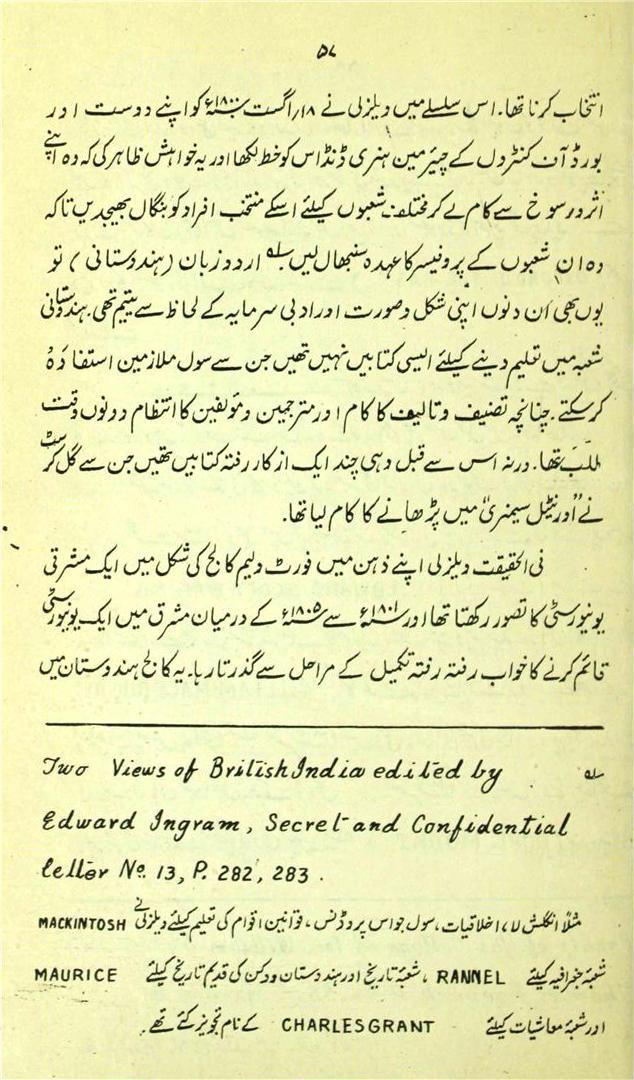 ۵۷
انتخاب کرنا تھا۔ اس سلسلے میں ویلزلی نے ۱۸/اگست ۱۸۰۰ء کو اپنے دوست اور
بورڈ آف کنٹرول کے چیئرمین ہنری ڈنڈاس کو خط لکھا اور یہ خواہش ظاہر کی کہ وہ اپنے
اثر ورسوخ سے کام لے کر مختلف شعبوں کیلئے اسکے منتخب افراد کو بنگال بھیجدیں تاکہ
وہ ان شعبوں کے پروفیسر کا عہدہ سنبھال لیں۔ ۱ہ اردو زبان (ہندوستانی) تو
یوں بھی اُن دنوں اپنی شکل وصورت اور ادبی سرمایہ کے لحاظ سے یتیم تھی۔ ہندوستانی
شعبہ میں تعلیم دینے کیلئے ایسی کتابیں نہیں تھیں جن سے سول ملازمین استفادہ
کرسکتے۔ چنانچہ تصنیف وتالیف کا کام اور مترجمین ومؤلفین کا انتظام دونوں وقت
طلب تھا۔ ورنہ اس سے قبل وہی چند ایک از کار رفتہ کتابیں تھیں جن سے گل کرسٹ
نے "اورنیٹل سیمنری" میں پڑھانے کا کام لیا تھا۔
فی الحقیقت ویلزلی اپنے ذہن میں فورٹ ولیم کالج کی شکل میں ایک مشرقی
یونیورسٹی کا تصور رکھتا تھا اور ۱۸۰۱ء سے ۱۸۰۵ء کے درمیان مشرق میں ایک یونیورسٹی
قائم کرنے کا خواب رفتہ رفتہ تکمیل کے مراحل سے گذرتا رہا۔ یہ کالج ہندوستان میں
۱ہ Two Views of British India edited by
Edward Ingram, Secret and Confidential
letter No. 13, P. 282, 283.
مثلاً انگلش لا، اخلاقیات، سول جورس پروڈنس، قوانین اقوام کی تعلیم کیلئے ویلزلی نے MACKINTOSH
شعبۂ جغرافیہ کیلئے RANNEL، شعبۂ تاریخ اور ہندوستان ودکن کی قدیم تاریخ کیلئے MAURICE
اور شعبۂ معاشیات کیلئے CHARLES GRANT کے نام تجویز کئے تھے۔